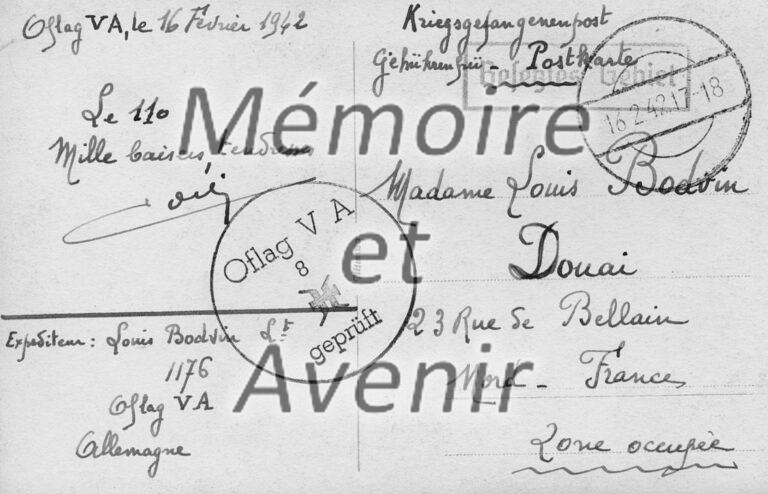 Oflag VA, le 16 Février 1942
Le 110
Mille baisers tendresses
Expéditeur: Louis Bodvin Lt
1176
Oflag VA
Allemagne
Kriegsgefangenenpost
Gebührenfrei - Postkarte
Belegtes Gebiet
16.2.42.17-18
Madame Louis Bodvin
Douai
23 Rue de Bellain
Nord - France
Zone occupée
Oflag V A
8
geprüft
Mémoire
et
Avenir